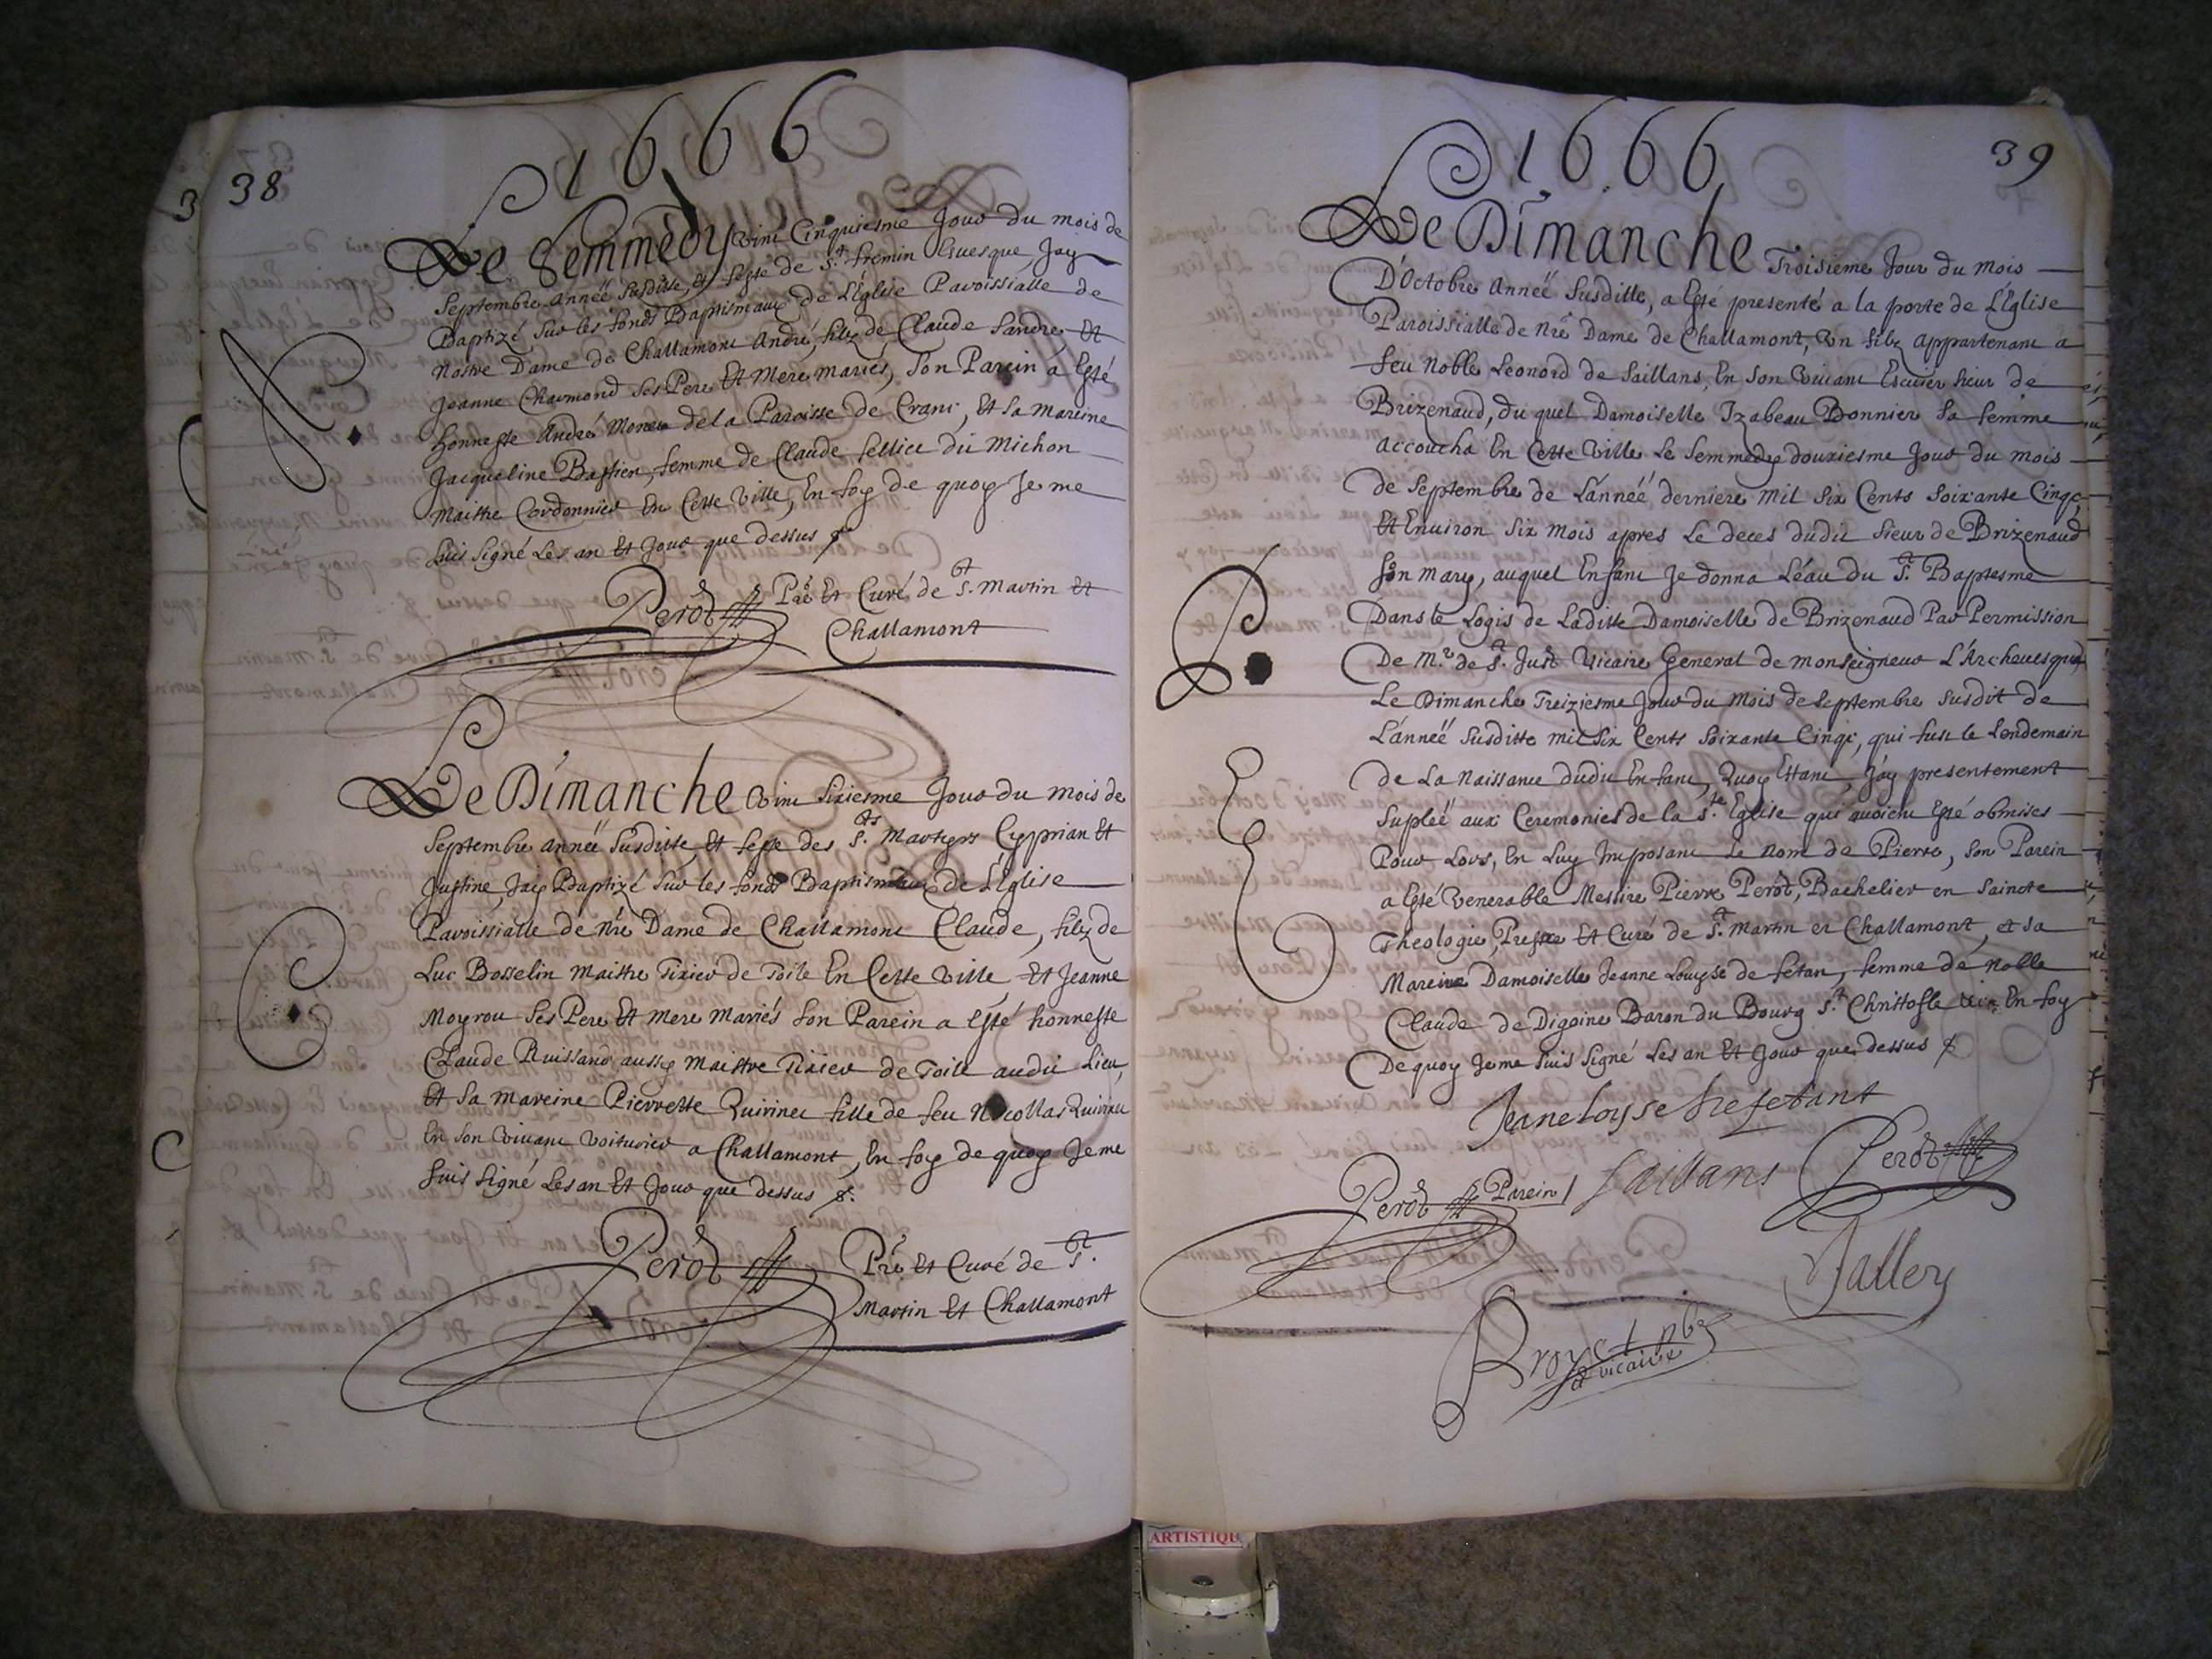 38
1666
Le Semmedy vint Cinquiesme Jour du mois de
Septembre Année susditte, et feste de St. firmin Evesque, Jay
Baptizé sur les fonds Baptismaux de L'Eglise Paroissialle de
Nostre Dame de Challamont André, filz de Claude Sandre Et
Jeanne Charmond ses Pere Et Mere mariés, Son Parein a Esté
honneste André de la Paroisse de Crans, Et sa mareine
Jacqueline Bastien, femme de Claude dit Michon
Maistre Cordonnier En Cette Ville, En foy de quoy Je me
suis signé Les an Et Jour que dessus
Perôd Pre Et Curé de St. Martin Et
Challamont
Le Dimanche vint sixiesme Jour du mois de
Septembre Année susditte, Et feste des Sts. Martyrs Cyprian Et
Justine, Jay Baptizé sur les fonds Baptismaux de L'Eglise
Paroissialle de Nre Dame de Challamont Claude, filz de
Luc Bosselin Maistre Tixier de Toile En Cette Ville Et Jeanne
Moyrou ses Pere Et mere Mariés son Parein a Esté honneste
Claude Ruissand aussy Maistre Tixier de Toile audit Lieu,
Et sa mareine Pierrette Quirinet fille de feu Nicollas Quirinet
En son vivant voiturier a Challamont, En foy de quoy Je me
suis signé Les an Et Jour que dessus
Perôd Pre Et Curé de St.
Martin Et Challamont
39
1666
Le Dimanche Troisieme Jour du Mois
D'Octobre Année susditte, a Esté presenté a la porte de L'Eglise
Paroissialle de Nre Dame de Challamont, Un filz appartenant a
feu Noble Leonord de Saillans, En son vivant Escuier sieur de
Brizenaud, du quel Damoiselle Izabeau Bonnier sa femme
accoucha En Cette Ville Le Semmedy douziesme Jour du mois
de Septembre de L'année derniere mil six Cents soixante Cinq,
Et Environ six mois apres Le deces dudit sieur de Brizenaud
son mary, auquel Enfant Je donna L'éau du St. Baptesme
Dans le Logis de Laditte Damoiselle de Brizenaud Par Permission
De Mr. de St. Just Vicaire General de monseigneur L'Archevesque,
Le Dimanche Treiziesme Jour du mois de Septembre susdit de
L'année susditte mil six Cents soixante Cinq, qui fust le Lendemain
de La Naissance dudit Enfant, Quoy Estant, J'ay presentement
supléé aux Ceremonies de la Ste. Eglise qui avoient Esté obmises
Pour Lors, En Luy Imposant Le nom de Pierre, son Parein
a Esté Venerable Messire Pierre Perôd, Bachelier en Saincte
Theologie, Prestre Et Curé de St. Martin et Challamont, et sa
Mareine Damoiselle Jeanne Louyse de fétan, femme de Noble
Claude de Digoine Baron du Bourg St. Christofle En foy
De quoy Je me suis signé Les an Et Jour que dessus
Jeane Loysse de fetant
Perôd Parein Saillans Perôd
Vallery
Broyet pbr
vicaire
ARTISTIQU